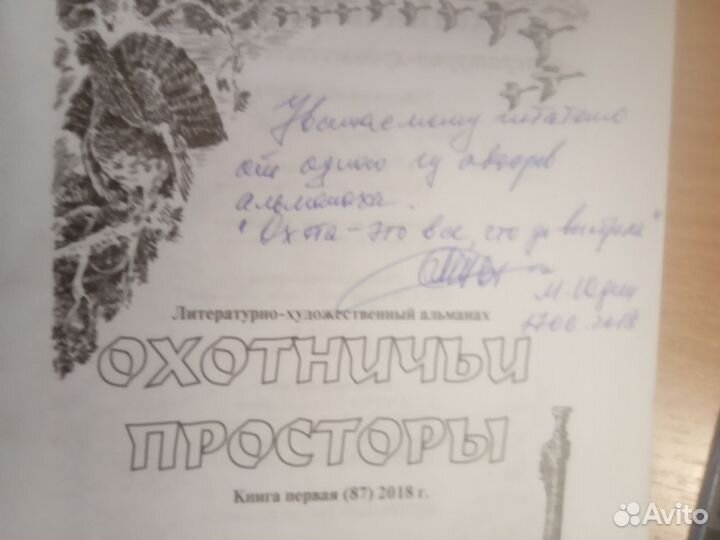 Уважаемому читателю
от одного из авторов
альманаха.
"Охота - это все, что до выстрела"
М. Юдин
17.06.2018
Литературно-художественный альманах
ОХОТНИЧЬИ
ПРОСТОРЫ
Книга первая (87) 2018 г.
Avito